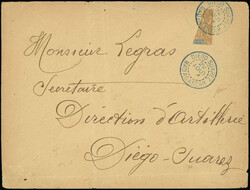 Monsieur Legras
Secrétaire
Direction d'Artillerie
Diégo-Suarez